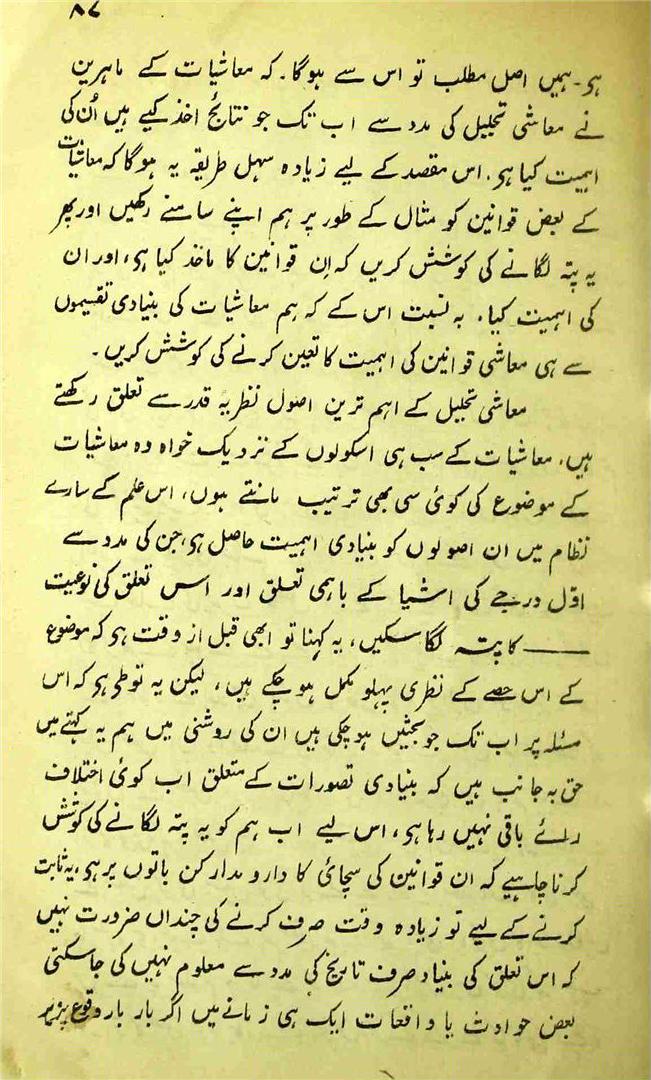 ۸۷
ہی۔ ہمیں اصل مطلب تو اس سے ہوگا۔ کہ معاشیات کے ماہرین
نے معاشی تحلیل کی مدد سے اب تک جو نتائج اخذ کیے ہیں اُن کی
اہمیت کیا ہی۔ اس مقصد کے لیے زیادہ سہل طریقہ یہ ہوگا کہ معاشیات
کے بعض قوانین کو مثال کے طور پر ہم اپنے سامنے رکھیں اور پھر
یہ پتہ لگانے کی کوشش کریں کہ اِن قوانین کا ماخذ کیا ہی، اور ان
کی اہمیت کیا، بہ نسبت اس کے کہ ہم معاشیات کی بنیادی تقسیموں
سے ہی معاشی قوانین کی اہمیت کا تعین کرنے کی کوشش کریں۔
معاشی تحلیل کے اہم ترین اصول نظریۂ قدر سے تعلق رکھتے
ہیں، معاشیات کے سب ہی اسکولوں کے نزدیک خواہ وہ معاشیات
کے موضوع کی کوئی سی بھی ترتیب مانتے ہوں، اس علم کے سارے
نظام میں ان اصولوں کو بنیادی اہمیت حاصل ہی، جن کی مدد سے
اوّل درجے کی اشیا کے باہمی تعلق اور اس تعلق کی نوعیت
—— کا پتہ لگا سکیں، یہ کہنا تو ابھی قبل از وقت ہی کہ موضوع
کے اس حصے کے نظری پہلو مکمل ہوچکے ہیں، لیکن یہ تو طی ہی کہ اس
مسئلہ پر اب تک جو بحثیں ہوچکی ہیں ان کی روشنی میں ہم یہ کہتے میں
حق بہ جانب ہیں کہ بنیادی تصورات کے متعلق اب کوئی اختلاف
رائے باقی نہیں رہا ہی، اس لیے اب ہم کو یہ پتہ لگانے کی کوشش
کرنا چاہیے کہ ان قوانین کی سچائی کا دارو مدار کن باتوں پر ہی، یہ ثابت
کرنے کے لیے تو زیادہ وقت صرف کرنے کی چنداں ضرورت نہیں
کہ اس تعلق کی بنیاد صرف تاریخ کی مدد سے معلوم نہیں کی جاسکتی
بعض حوادث یا واقعات ایک ہی زمانے میں اگر بار بار وقوع پزیر